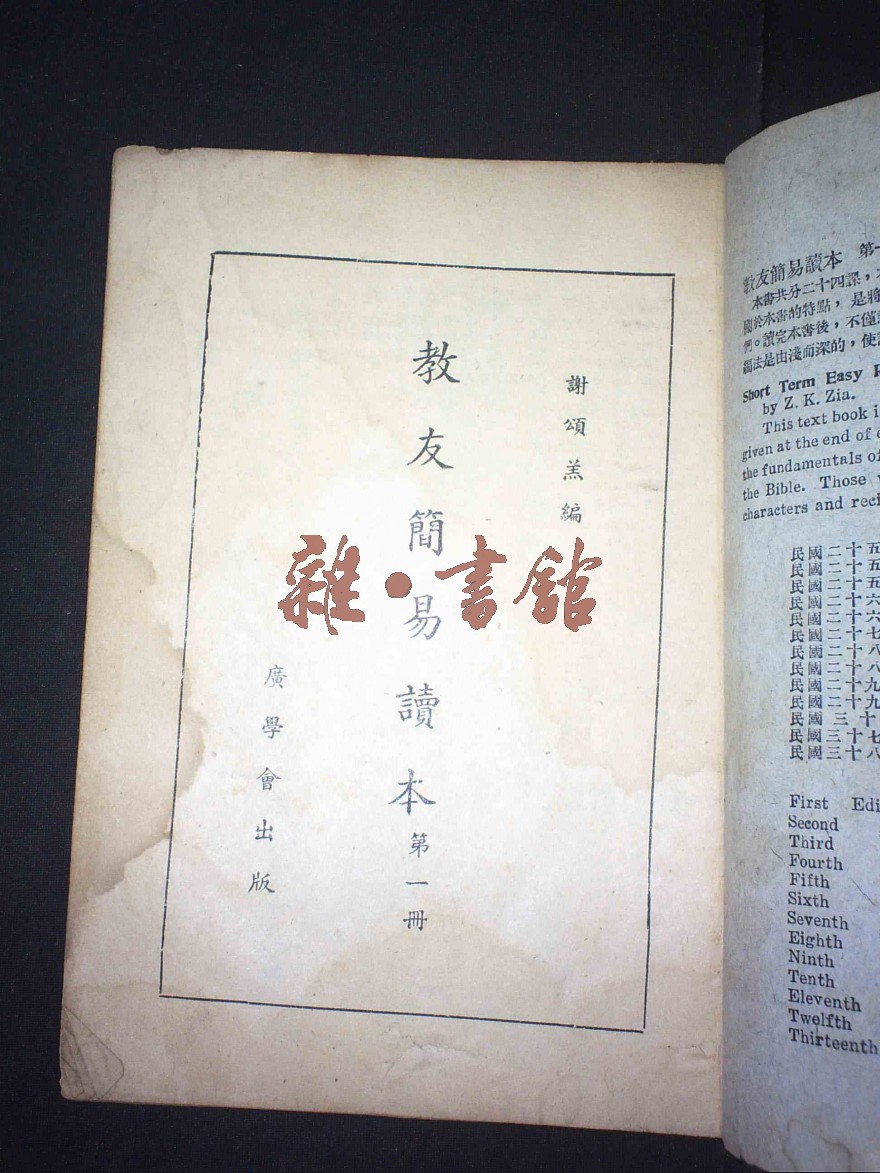 謝頌羔編
教友簡易讀本 第一冊
廣學會出版
雜·書館
教友簡易讀本 第
本書共分二十四課，
關於本書的特點，是將
們。讀完本書後，不僅
編法是由淺而深的，使
Short Term Easy R
by Z. K. Zia.
This text book i
given at the end of e
the fundamentals of
the Bible. Those
characters and reci
民國二十五
民國二十五
民國二十五
民國二十六
民國二十六
民國二十七
民國二十八
民國二十八
民國二十九
民國二十九
民國三十
民國三十七
民國三十八
First Edi
Second
Third
Fourth
Fifth
Sixth
Seventh
Eighth
Ninth
Tenth
Eleventh
Twelfth
Thirteenth